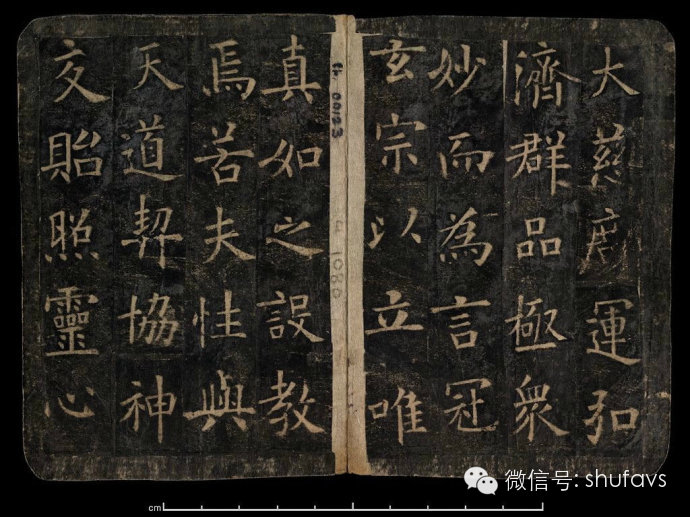 大慈廣運弘
濟群品極眾
妙而為言冠
玄宗以立唯
真如之設教
焉若夫性與
天道契協神
交貽照靈心
1080
cm
微信号: shufavs